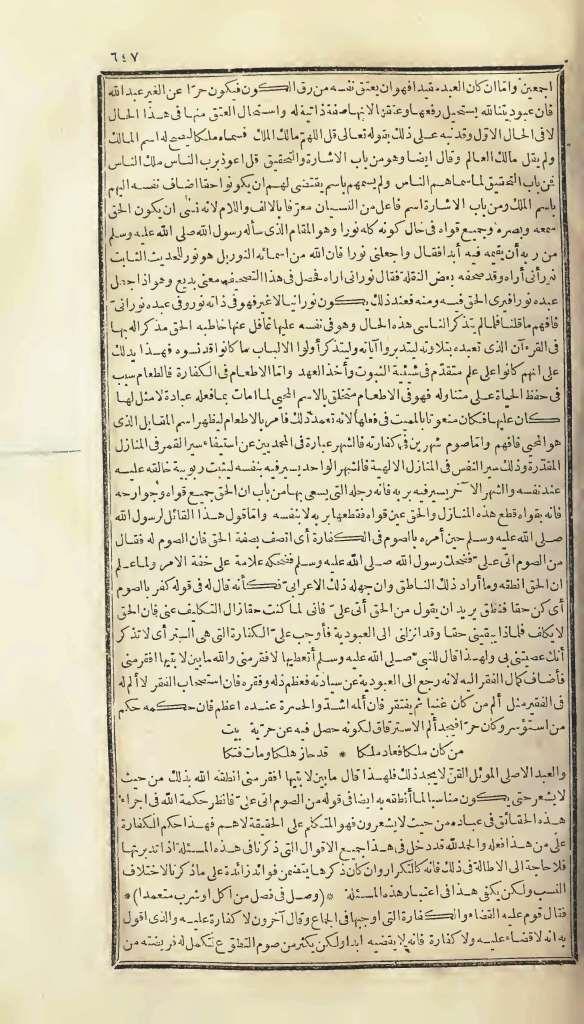 ٦٤٧
اجمعين وامّا ان كان العبد مقيدا فهو ان يعتق نفسه من رق الكون فيكون حرّا عن الغير عبد الله
فان عبوديتنا لله يستحيل رفعها وعتقها لانها صفة ذاتية له واستحال العتق منها فى هذا الحال
لا فى الحال الاوّل وقد نبه عـلى ذلك بقوله تعالى قل اللهمّ مالك الملك فسماه ملكا ليصح له اسم المالك
ولم يقل مالك العالم وقال ايضا وهو من باب الاشارة والتحقيق قل اعوذ برب الناس ملك الناس
فمن باب التحقيق لما سماهم الناس ولم يسمهم باسم يقتضى لهم ان يكونوا حقا اضاف نفسه اليهم
باسم الملك ومن باب الاشارة اسم فاعل من النسيان معرّفا بالالف واللام لانه نسى ان يكون الحق
سمعه وبصره وجميع قواه فى حال كونه كله نورا وهو المقام الذى سأله رسول الله صلى الله عليه وسلم
من ربه أن يقيمه فيه أبدا فقال واجعلنى نورا فان الله من اسمائه النور بل هو نور للحديث الثابت
نور أنى أراه وقد صحفه بعض النقلة فقال نورانى اراه فحصل فى هذا التصحيف معنى بديع وهو اذا جعل
عبده نورا فيرى الحق فيه ومنه فعند ذلك يكون نورانيا لا غير فهو فى ذاته نور وفى عبده نورانىّ
فافهم ما قلنا فلما لم يتذكر الناسى هذه الحال وهو فى نفسه عليها غافل عنها خاطبه الحق مذكرا له بها
فى القرءآن الذى تعبده بتلاوته ليتدبروا آياته وليتذكر أولوا الالباب ما كانوا قد نسوه فهذا يدلك
على انهم كانوا على علم متقدّم فى شيئية الثبوت وأخذ العهد وامّا الاطعام فى الكفارة فالطعام سبب
فى حفظ الحياة عـلى متناوله فهو فى الاطعام متخلق بالاسم المحيى لما امات بما فعله عبادة لا مثل لها
كان عليها فكان منعوتا بالمميت فى فعلها لانه تعمد ذلك فامر بالاطعام ليظهر اسم المقابل الذى
هو المحيى فافهم وامّا صوم شهرين فى كفارته فالشهر عبارة فى المحمديين عن استيفاء سير القمر فى المنازل
المقدّرة وذلك سير النفس فى المنازل الالهية فالشهر الواحد يسير فيه بنفسه ليثبت ربوبية خالقه عليه
عند نفسه والشهر الآخر يسير فيه بربه فانه رجله التى يسعى بها من باب ان الحق جميع قواه وجوارحه
فانه بقواه قطع هذه المنازل والحق عين قواه فقطعها بربه لا بنفسه وامّا قول هذا القائل لرسول الله
صلى الله عليه وسلم حين أمره بالصوم فى الكفارة أى اتصف بصفة الحق فان الصوم له فقال
من الصوم اتى علىّ فضحك رسول الله صلى الله عليه وسلم فضحكه علامة على خفة الامر ولما علم
ان الحق انطقه وما أراد ذلك الناطق وان جهله ذلك الاعرابىّ فكأنه قال له فى قوله كفر بالصوم
أى كن حقا فنطق يريد ان يقول من الحق أتى علىّ فانى لما كنت حقا زال التكليف عنى فان الحق
لا يكلف فلماذا يبقينى حقا وقد انزلنى الى العبودية فأوجب علىّ الكفارة التى هى الستر أى لا تذكر
أنك عصيتنى بى ولهذا قال للنبىّ صلى الله عليه وسلم أتعطيها لافقر منى والله ما بين لابتيها افقر منى
فأضاف كمال الفقر اليه لانه رجع الى العبودية عن سيادته فعظم ذله وفقره فان استصحاب الفقر لا الم له
فى الفقير مثل ألم من كان غنيا ثم يفتقر فان ألمه اشدّ والحسرة عنده اعظم فان حكمه حكم
من استؤسر وكان حرّا فيجد ألم الاسترقاق لكونه حصل فيه عن حرّية بيت
من كان ملكا فعاد ملكا * قد حاز هلكا ومات فتكا
والعبد الاصلى الموثل القنّ لا يجد ذلك فلهذا قال ما بين لابتيها افقر منى انطقه الله بذلك من حيث
لا يشعر حتى يكون مناسبا لما أنطقه به ايضا فى قوله من الصوم اتى علىّ فانظر حكمة الله فى اجراء
هذه الحقائق فى عباده من حيث لا يشعرون فهو المتكلم على الحقيقة لا هم فهذا حكم الكفارة
على من هذا فعله والحمد لله قد دخل فى هذا جميع الاقوال التى ذكرنا فى هذه المسئلة اذا تدبرتها
فلا حاجة الى الاطالة فى ذلك فانه كالتكرار وان كان ذكرها يتضمن فوائد زائدة على ما ذكرنا لاختلاف
النسب ولكن يكفى هذا فى اعتبار هذه المسئلة * (وصل فى فصل من أكل او شرب متعمدا) *
فقال قوم عليه القضاء والكفارة التى اوجبها فى الجماع وقال آخرون لا كفارة عليه والذى اقول
به انه لا قضاء عليه ولا كفارة فانه لا يقضيه ابدا ولكن يكثر من صوم التطوّع لتكمل له فريضته من